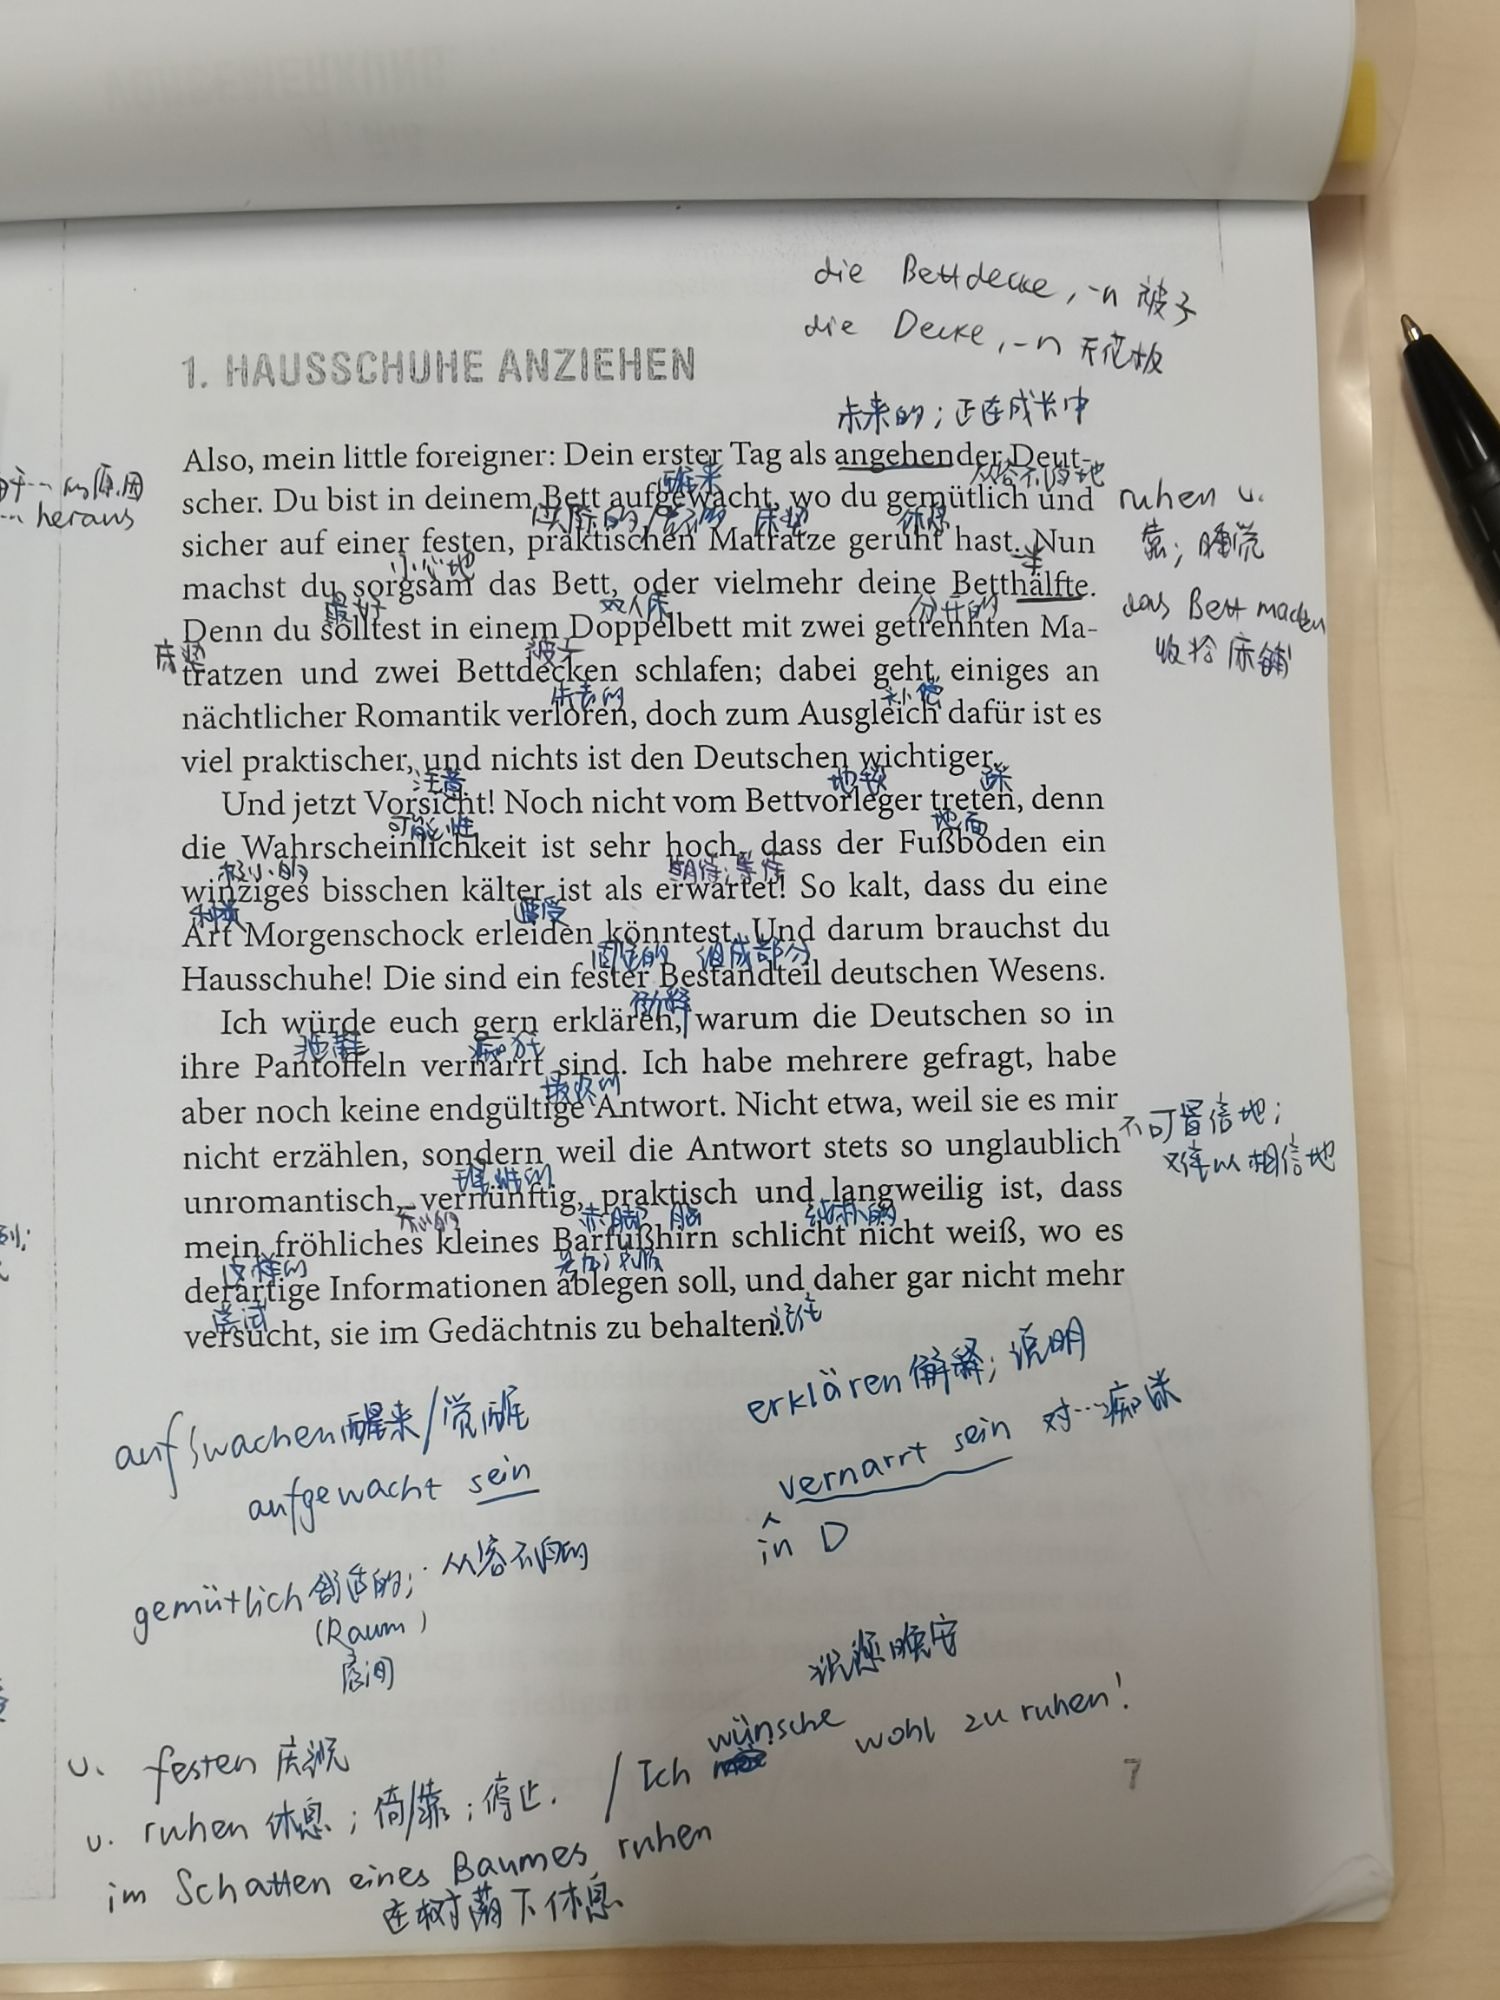 die Bettdecke, -n 被子
die Decke, -n 天花板
1. HAUSSCHUHE ANZIEHEN
未来的；正在成长中
Also, mein little foreigner: Dein erster Tag als angehender Deut-
醒来 从容不迫地
scher. Du bist in deinem Bett aufgewacht, wo du gemütlich und
实际的 床垫 休息
sicher auf einer festen, praktischen Matratze geruht hast. Nun
小心地 半
machst du sorgsam das Bett, oder vielmehr deine Betthälfte.
最好 双人床 分开的
Denn du solltest in einem Doppelbett mit zwei getrennten Ma-
床垫 被子
tratzen und zwei Bettdecken schlafen; dabei geht einiges an
失去的 补偿
nächtlicher Romantik verloren, doch zum Ausgleich dafür ist es
viel praktischer, und nichts ist den Deutschen wichtiger.
注意 地毯 踩
Und jetzt Vorsicht! Noch nicht vom Bettvorleger treten, denn
可能性 地面
die Wahrscheinlichkeit ist sehr hoch, dass der Fußboden ein
极小的 期待；等待
winziges bisschen kälter ist als erwartet! So kalt, dass du eine
种类 遭受
Art Morgenschock erleiden könntest. Und darum brauchst du
固定的 组成部分
Hausschuhe! Die sind ein fester Bestandteil deutschen Wesens.
解释
Ich würde euch gern erklären, warum die Deutschen so in
拖鞋 痴狂
ihre Pantoffeln vernarrt sind. Ich habe mehrere gefragt, habe
最终的
aber noch keine endgültige Antwort. Nicht etwa, weil sie es mir
nicht erzählen, sondern weil die Antwort stets so unglaublich
理性的
unromantisch, vernünftig, praktisch und langweilig ist, dass
赤脚 脑 纯朴的
mein fröhliches kleines Barfußhirn schlicht nicht weiß, wo es
这样的
derartige Informationen ablegen soll, und daher gar nicht mehr
尝试
versucht, sie im Gedächtnis zu behalten. 记住
的原因
heraus
ruhen v.
靠；睡觉
das Bett machen
收拾床铺
不可置信地；
难以相信地
auf/wachen 醒来/觉醒
aufgewacht sein
gemütlich 舒适的；从容不迫的
(Raum)
房间
erklären 解释；说明
vernarrt sein 对…痴迷
in D
v. festen 庆祝
v. ruhen 休息；倚靠；停止. / Ich wünsche wohl zu ruhen!
祝您晚安
im Schatten eines Baumes ruhen
在树荫下休息
7